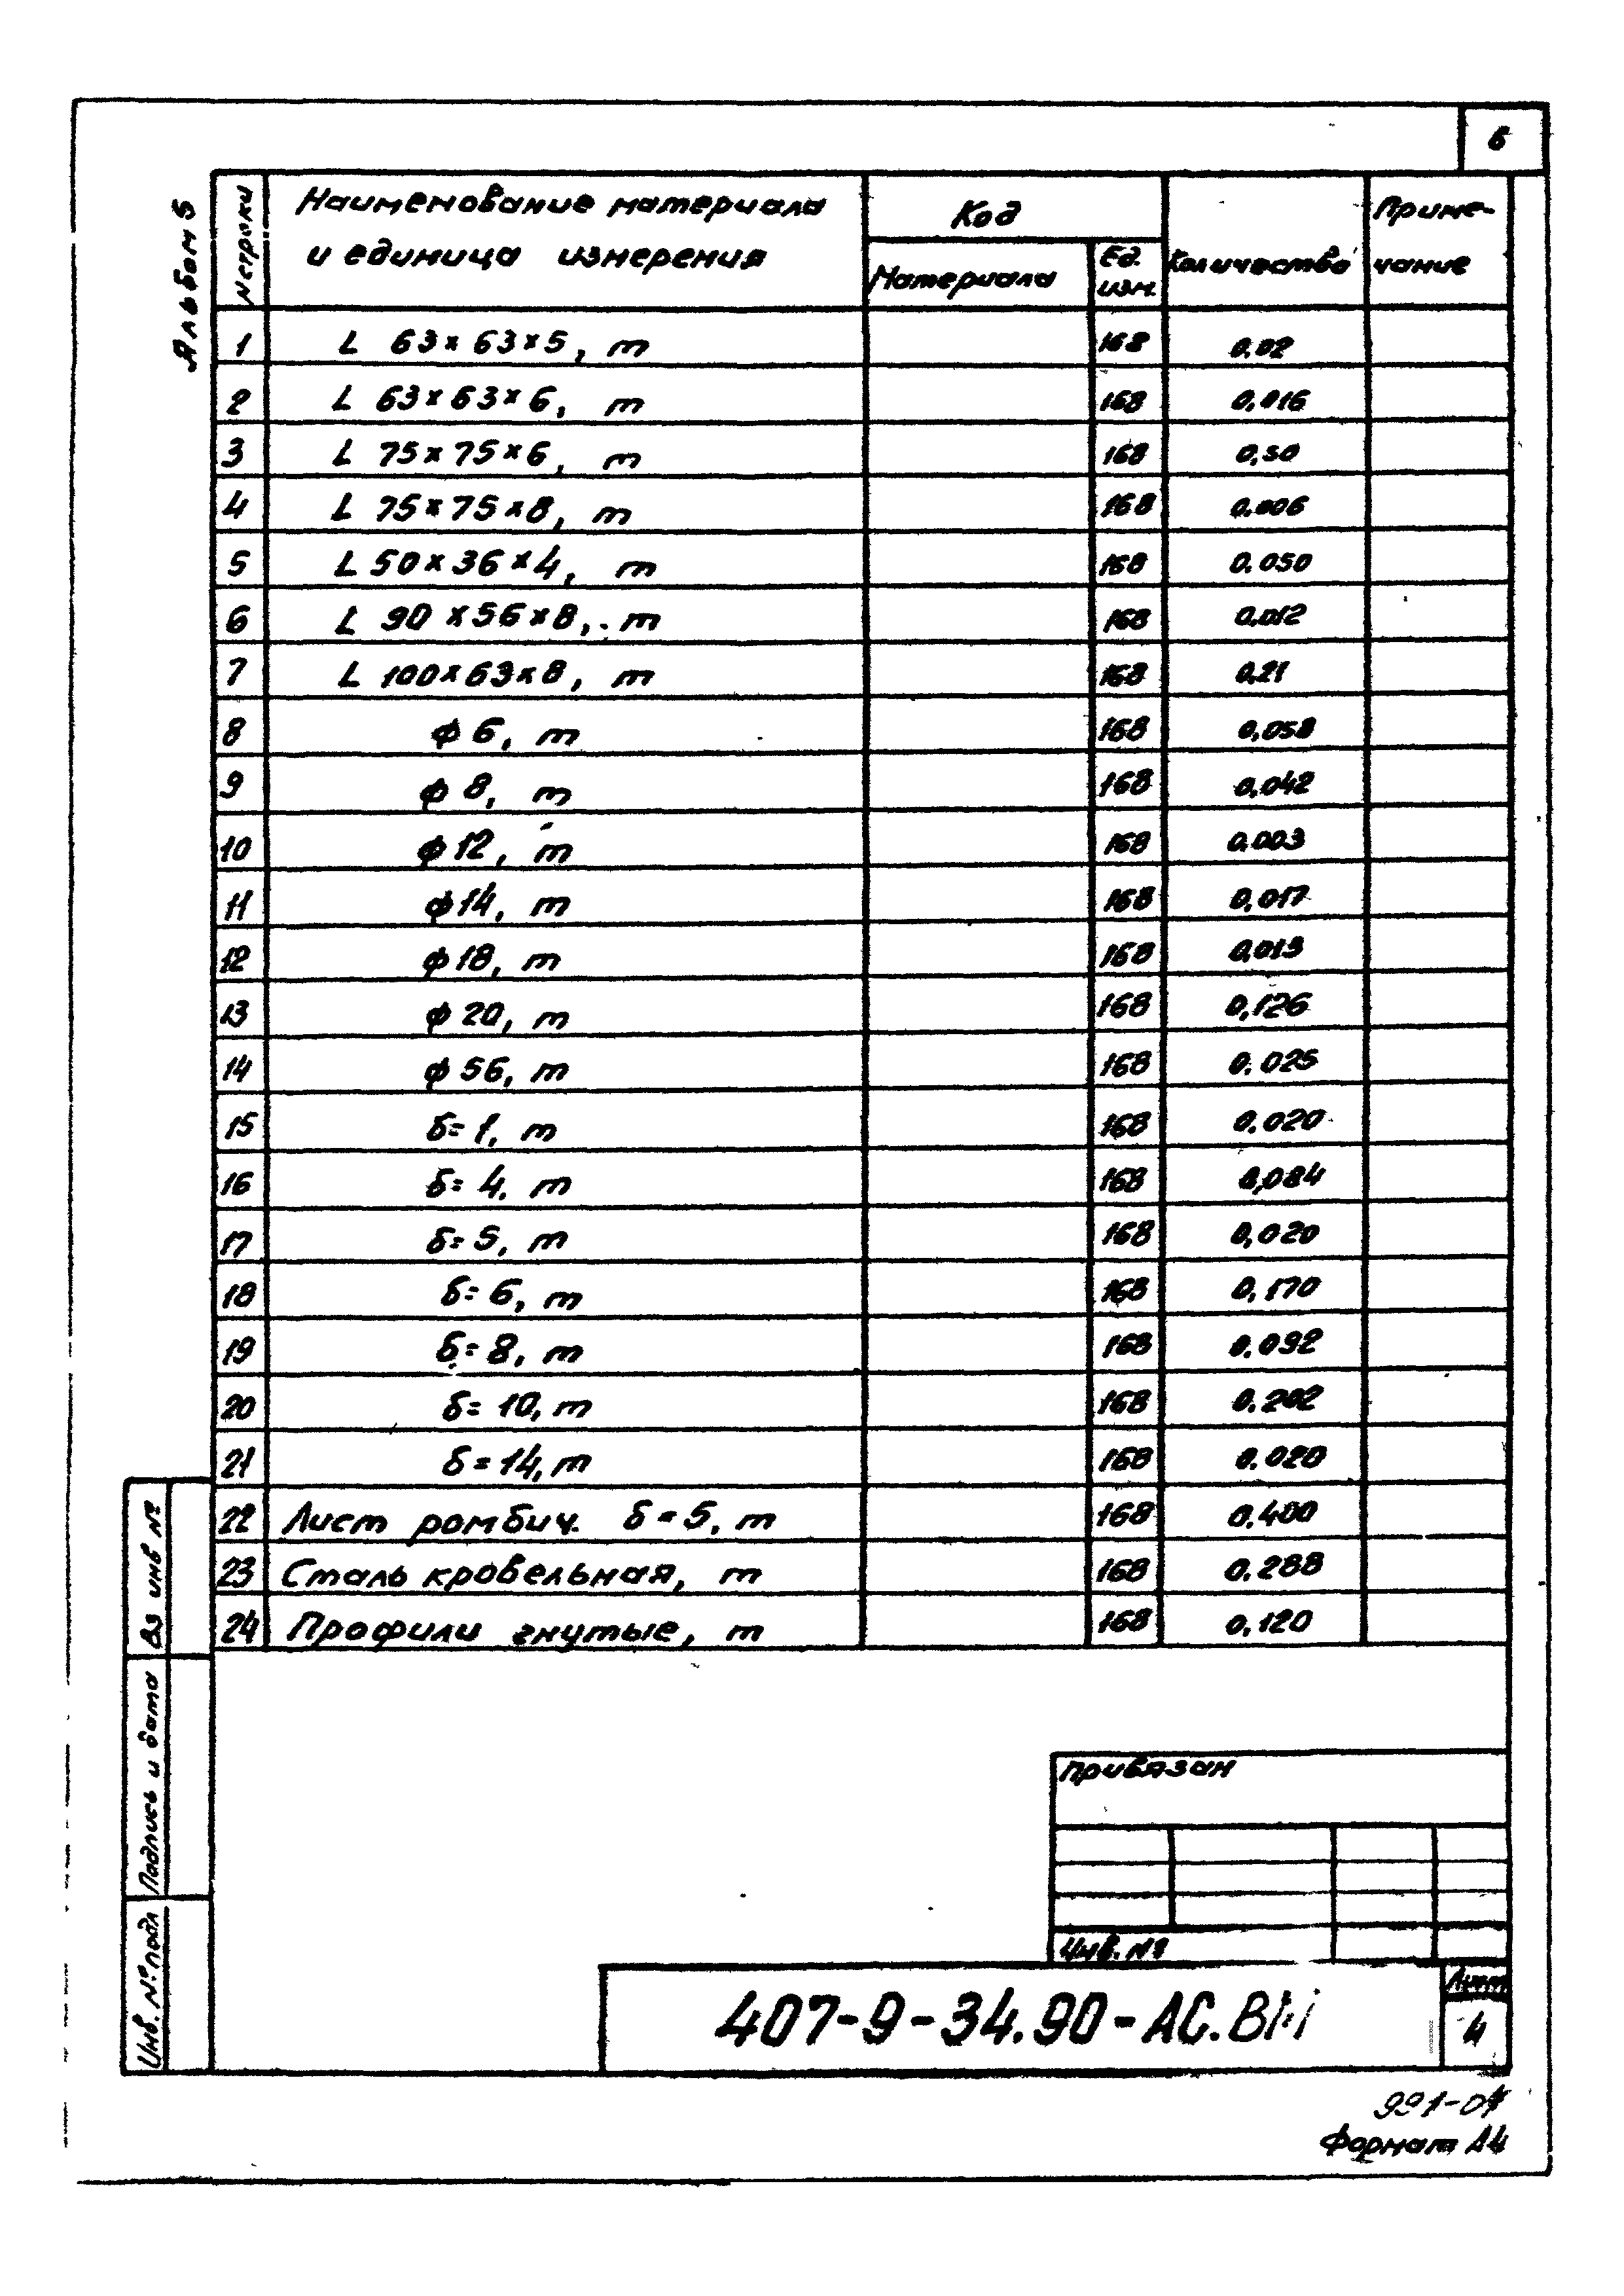 6
Альбом 5
№ строки
Наименование материала
и единица измерения
Код
Материала
Ед.
изм.
Количество
Приме-
чание
1 L 63×63×5, т 168 0.02
2 L 63×63×6, т 168 0,016
3 L 75×75×6, т 168 0,30
4 L 75×75×8, т 168 0.006
5 L 50×36×4, т 168 0.050
6 L 90×56×8, т 168 0,012
7 L 100×63×8, т 168 0,21
8 ф 6, т 168 0,058
9 ф 8, т 168 0,042
10 ф 12, т 168 0.003
11 ф 14, т 168 0,017
12 ф 18, т 168 0,013
13 ф 20, т 168 0,126
14 ф 56, т 168 0.025
15 δ= 1, т 168 0.020
16 δ= 4, т 168 0,084
17 δ= 5, т 168 0,020
18 δ= 6, т 168 0,170
19 δ= 8, т 168 0.092
20 δ= 10, т 168 0.202
21 δ= 14, т 168 0.020
22 Лист ромбич. δ=5, т 168 0.400
23 Сталь кровельная, т 168 0.288
24 Профили гнутые, т 168 0,120
Вз инв №
Подпись и дата
Инв. № подл
Привязан
Инв. №
407-9-34.90-АС.ВМ
Лист
4
Формат А4